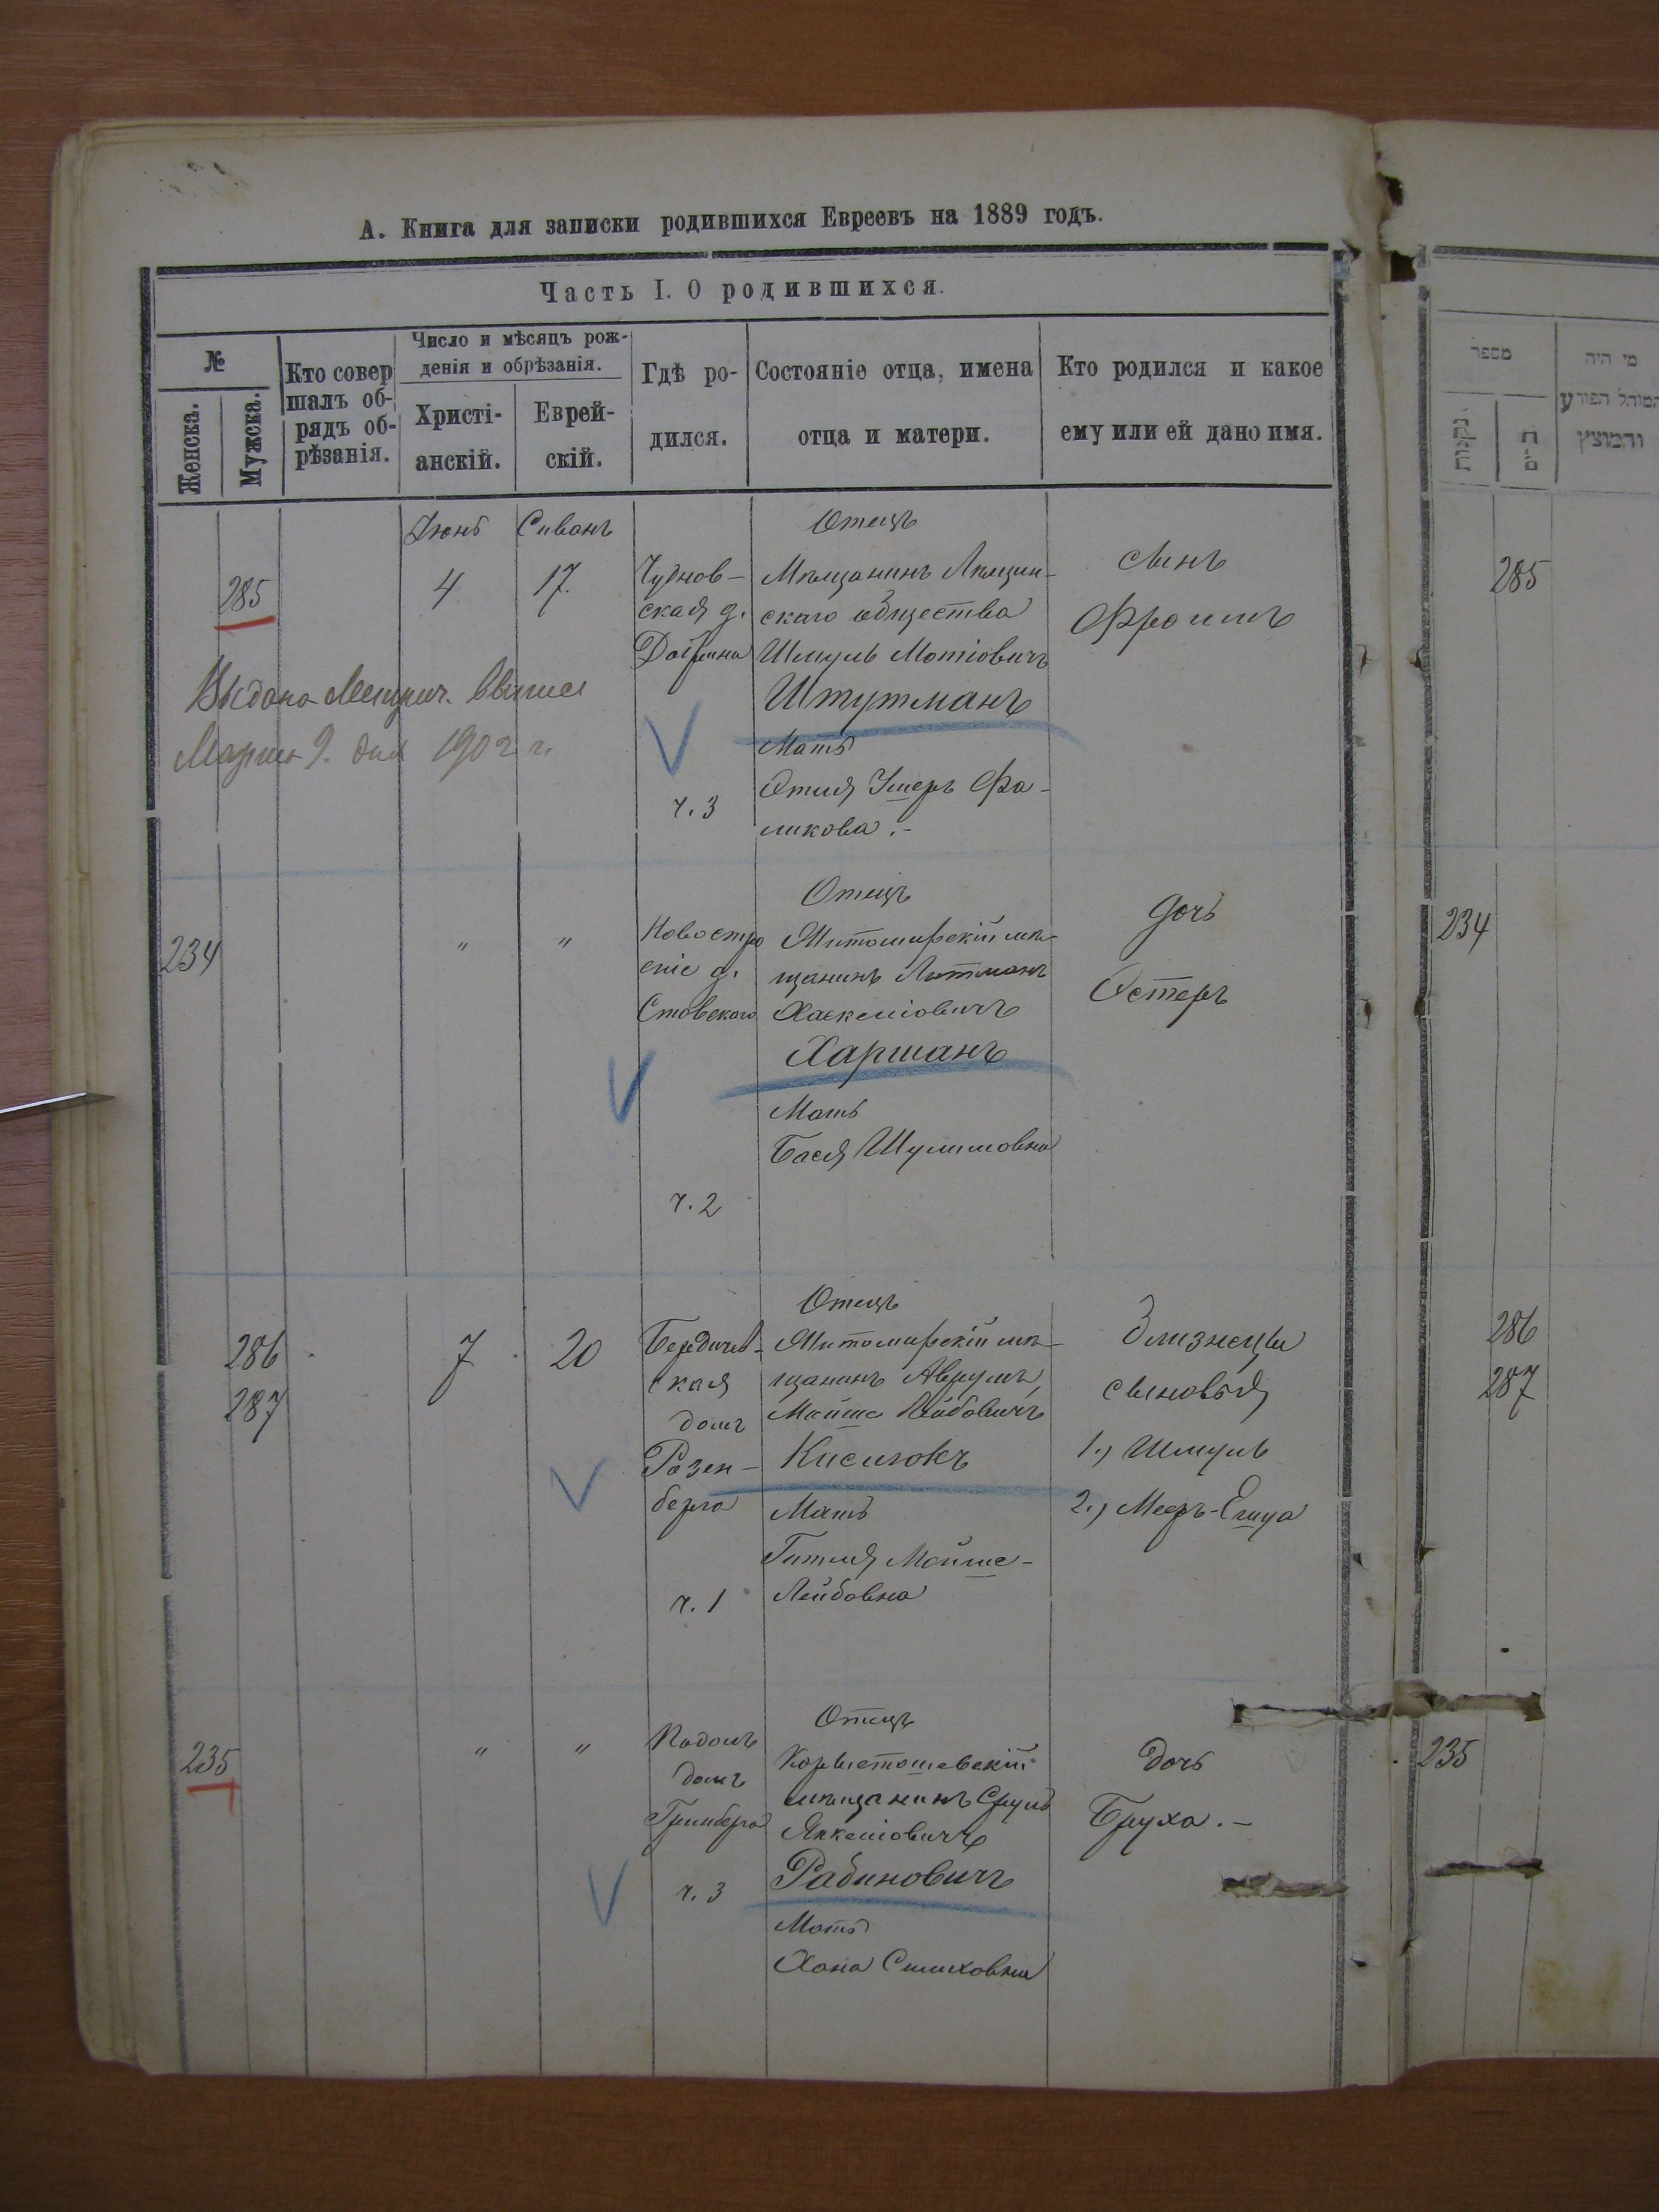 А. Книга для записки родившихся Евреевъ на 1889 годъ.
Часть I. О родившихся.
№
Женска.
Мужска.
Кто совер
шалъ об-
рядъ об-
рѣзанія.
Число и мѣсяцъ рож-
денія и обрѣзанія.
Христі-
анскій.
Еврей-
скій.
Гдѣ ро-
дился.
Состояніе отца, имена
отца и матери.
Кто родился и какое
ему или ей дано имя.
285
Іюнь
4
Сиванъ
17.
Чуднов-
ская д.
Отецъ
Мѣщанинъ
скаго общества
Шмуль Мотіовичъ
Штутманъ
Мать
Этля Эстеръ Фа-
ликова.-
сынъ
Фроимъ
ч. 3
Выдана Метрич. выпись
Марта 9. дня 1902 г.
234
"
"
Новостро
еніе д.
Отецъ
Житомирскій мѣ-
щанинъ Литманъ
Хаскеліовичъ
Харманъ
Мать
Бася Шулимовна
дочь
Эстеръ
ч. 2
286
287
7
20
Бердичев-
ская
домъ
Розен-
берга
Отецъ
Житомирскій мѣ-
щанинъ Аврумъ
Мойше Лейбовичъ
Киселюкъ
Мать
Гитля Мойше-
Лейбовна
Близнецы
сыновья
1.) Шмуль
2.) Мееръ-
ч. 1
235
"
"
Подолъ
домъ
Гринберга
Отецъ
Коростышевскій
мѣщанинъ Сруль
Янкеліовичъ
Рабиновичъ
Мать
Хана
дочь
Бруха.-
ч. 3
מספר
נקבות
מי היה
המוהל הפורע
והמוצץ
285
234
286
287
235